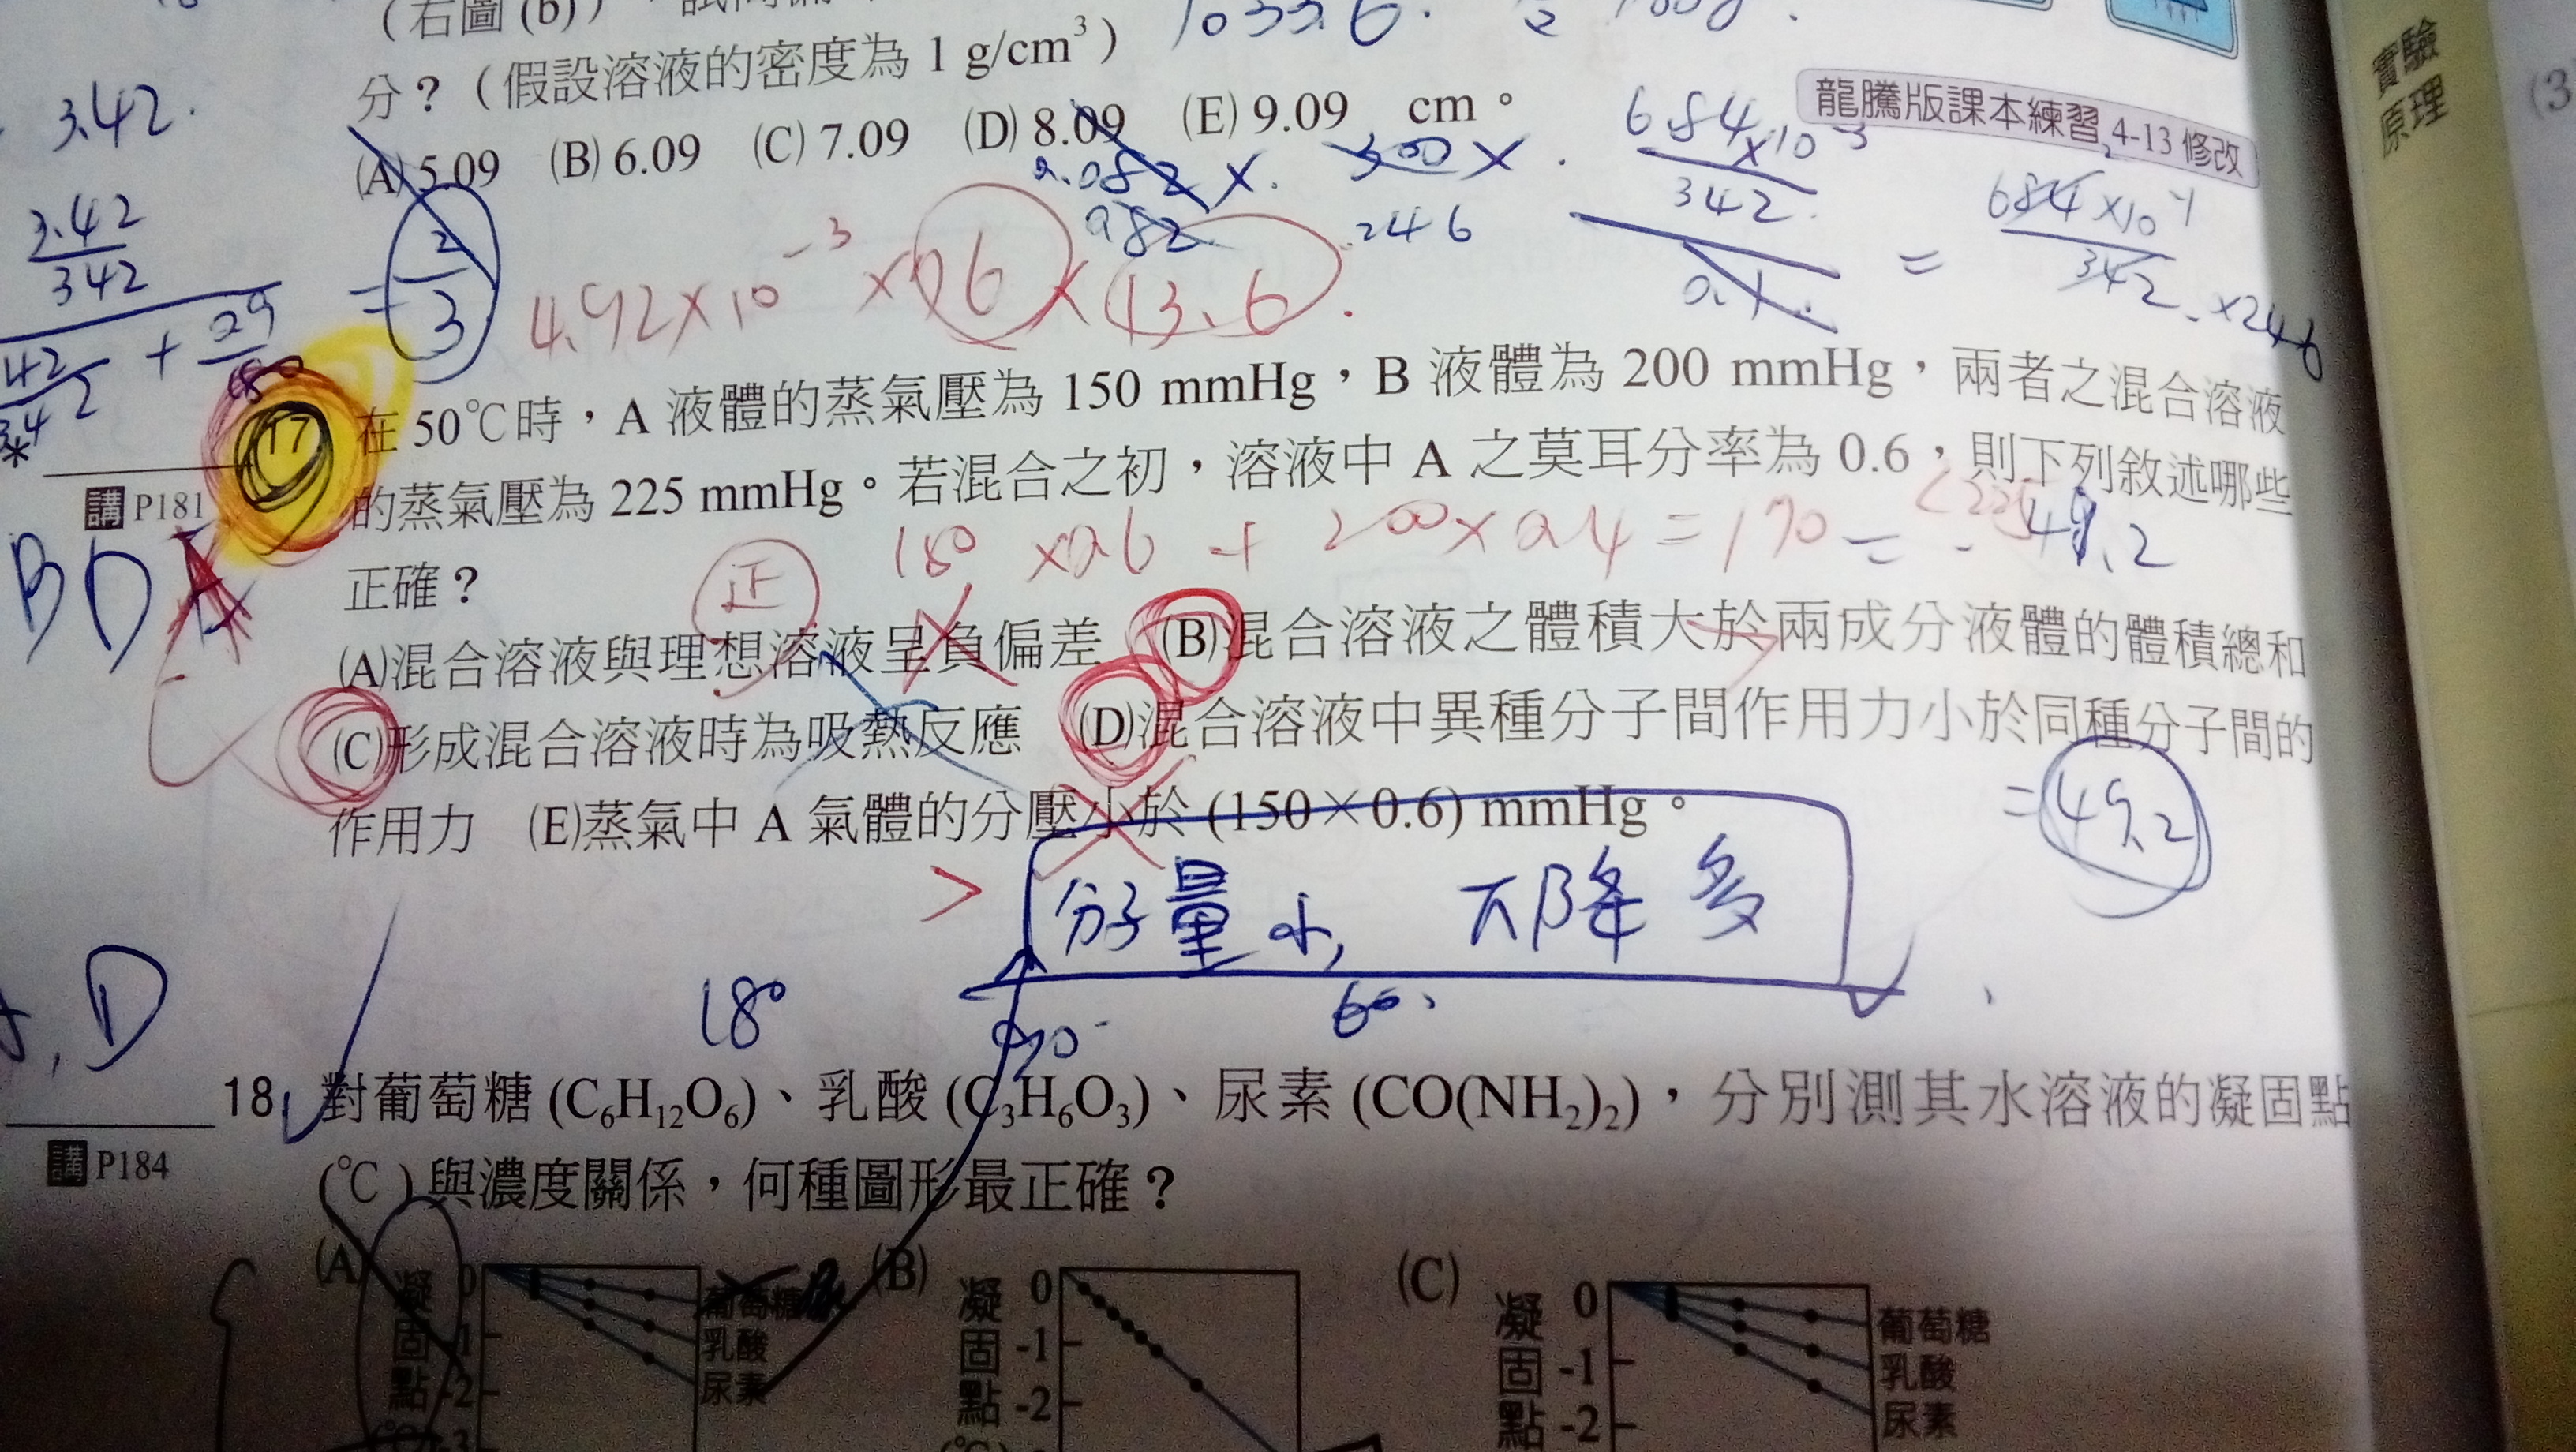 (右圖(b))
1033.6.
分?(假設溶液的密度為 1 g/cm³)
3.42.
(A) 5.09 (B) 6.09 (C) 7.09 (D) 8.09 (E) 9.09 cm。
龍騰版課本練習 4-13 修改
實驗
原理
(3
0.082 X. 300 X.
684 x10⁻³
342
982
.246
0.1
=
342
x246
3.42
342
= 2
3
4.92x10⁻³ x 76 x 13.6.
17
在 50℃時,A 液體的蒸氣壓為 150 mmHg,B 液體為 200 mmHg,兩者之混合溶液
的蒸氣壓為 225 mmHg。若混合之初,溶液中 A 之莫耳分率為 0.6,則下列敘述哪些
講 P181
正確?
x0.6 + 200x0.4 = 170
49.2
BD
正
(A)混合溶液與理想溶液呈負偏差 (B)混合溶液之體積大於兩成分液體的體積總和
(C)形成混合溶液時為吸熱反應 (D)混合溶液中異種分子間作用力小於同種分子間的
作用力 (E)蒸氣中 A 氣體的分壓小於 (150×0.6) mmHg。
= 49.2
>
分子量小, 下降多
180
90
60
, D
18. 對葡萄糖 (C₆H₁₂O₆)、乳酸 (C₃H₆O₃)、尿素 (CO(NH₂)₂),分別測其水溶液的凝固點
講 P184
(℃) 與濃度關係,何種圖形最正確?
(A) 凝固點 (℃) 0 -1 -2 -3 葡萄糖 乳酸 尿素
(B) 凝固點 (℃) 0 -1 -2
(C) 凝固點 0 -1 -2 葡萄糖 乳酸 尿素